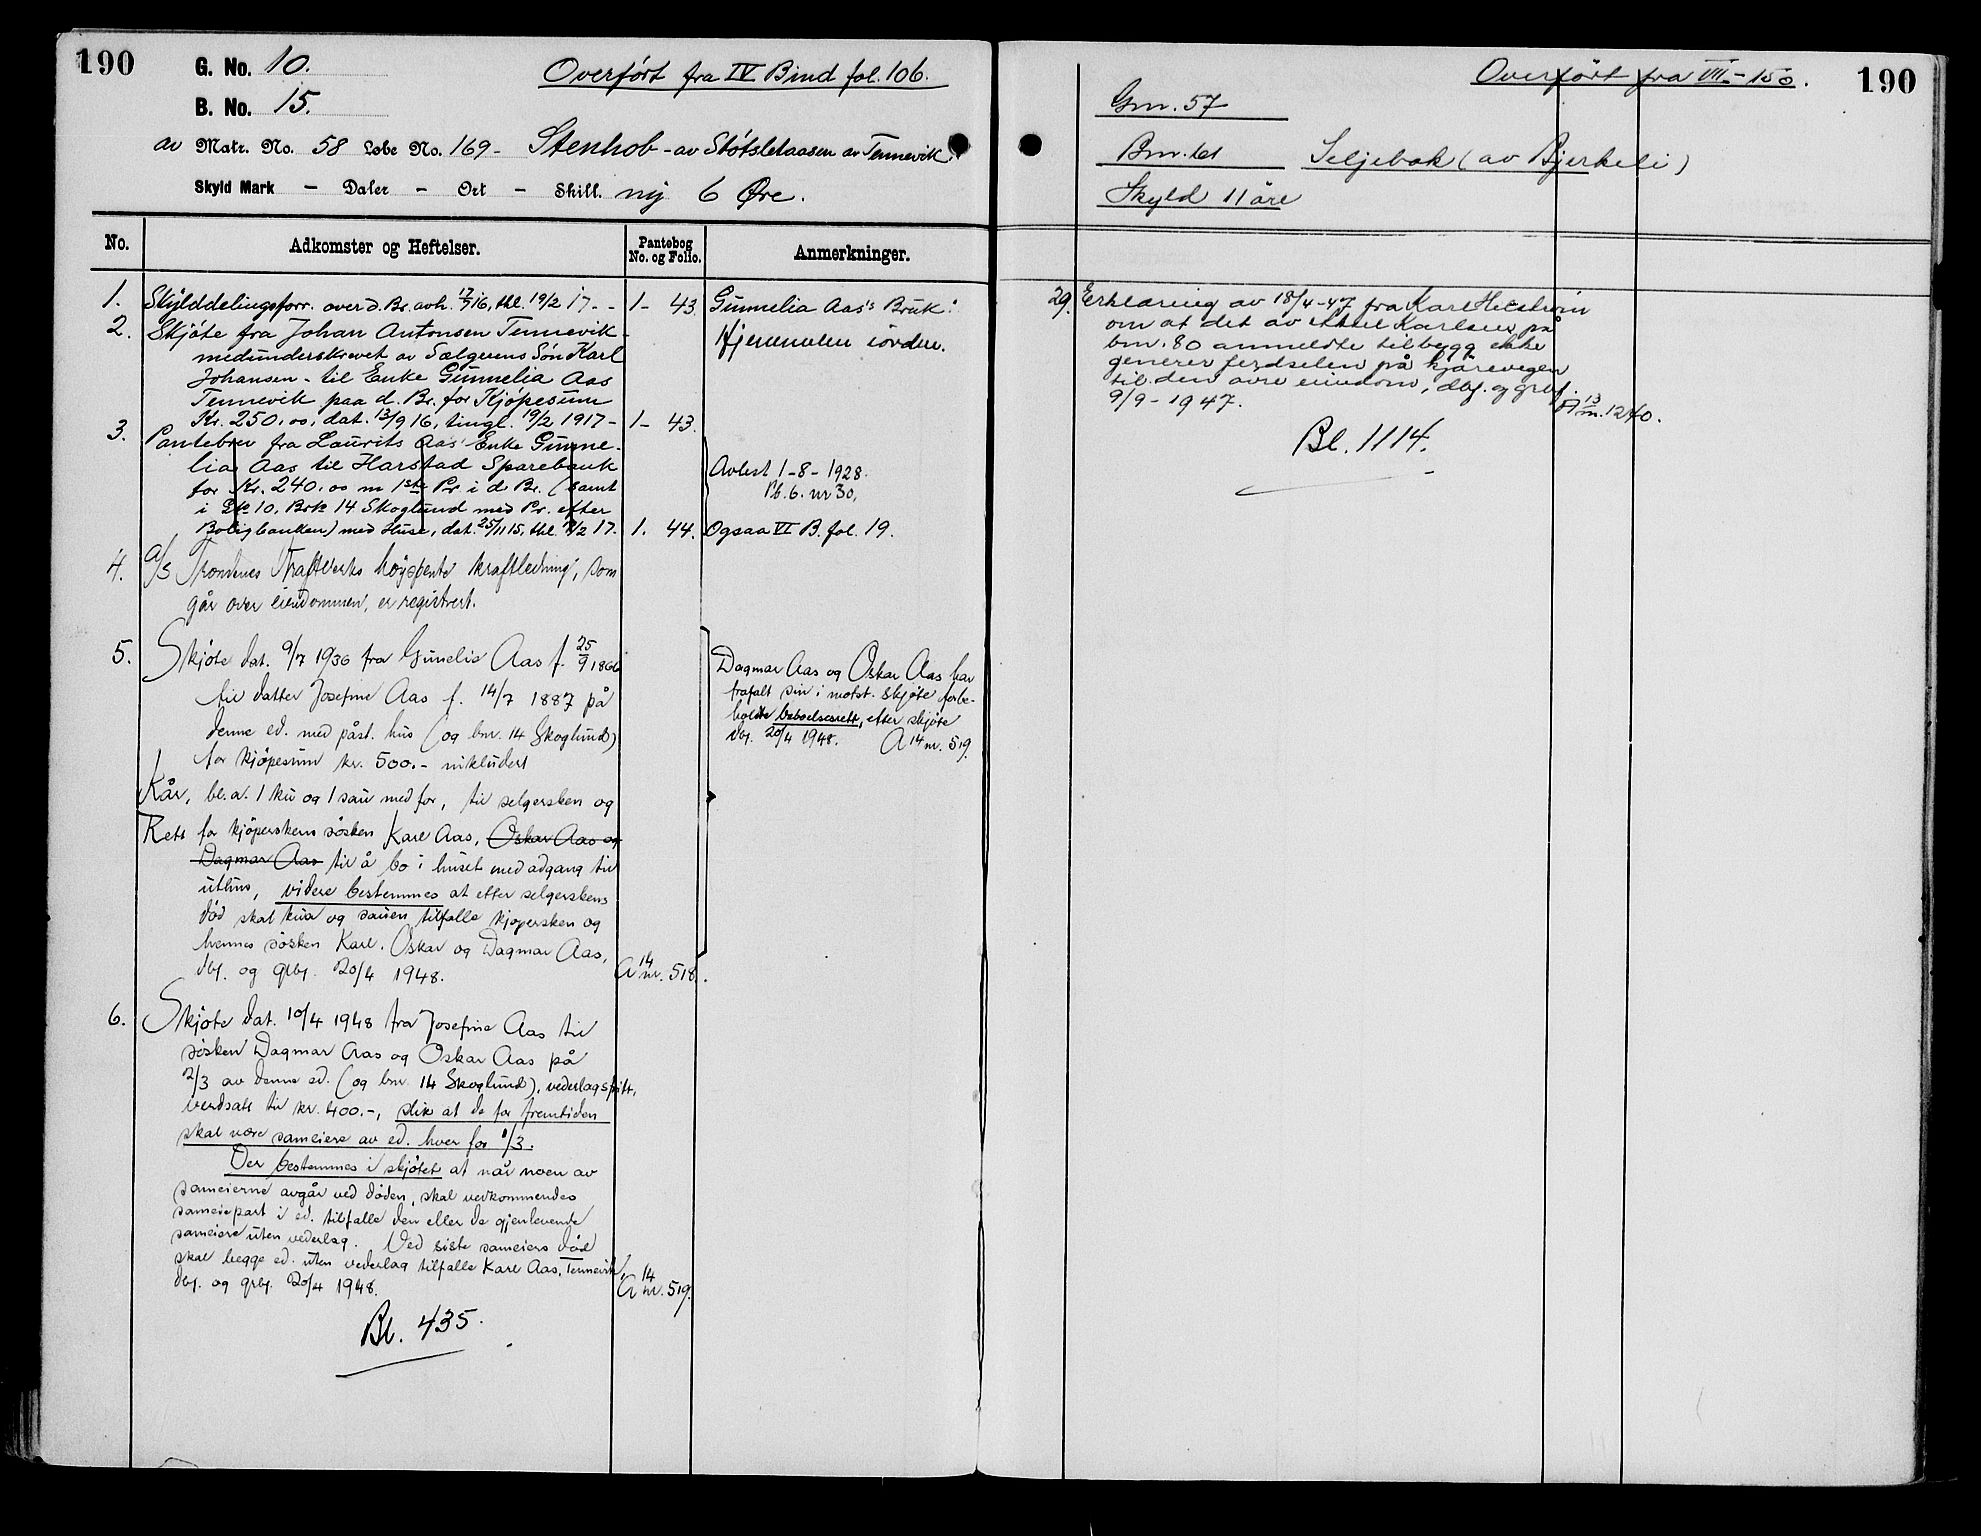 190
G. No. 10.
Overført fra IV Bind fol. 106.
B. No. 15.
av Matr. No. 58 Løbe No. 169 - Stenhob - av Støtsletaasen av Tennevik
Skyld Mark - Daler - Ort - Skill. ny 6 Øre.
No.
Adkomster og Heftelser.
Pantebog No. og Folio.
Anmerkninger.
1. Skylddelingsforr. over d. Br. avh. 17/7 16, thl. 19/2 17 - - 1 - 43. Gunnelia Aas's Bruk:
2. Skjøte fra Johan Antonsen Tennevik - Hjemmelen iorden.
medunderskrevet av Sælgerens Søn Karl
Johansen - til Enke Gunnelia Aas
Tennevik paa d. Br. for Kjøpesum
Kr. 250,00, dat. 13/9 16, tingl. 19/2 1917 - 1 - 43.
3. Pantebrev fra Laurits Aas' Enke Gunne-
lia Aas til Harstad Sparebank
for Kr. 240,00 m 1ste Pr. i d. Br. (samt
i Gk 10, Brk 14 Skoglund med Pr. efter
Boligbanken) med Huse, dat. 25/11 15, thl. 19/2 17. 1. 44.
Avlest 1-8-1928.
Pb. 6. nr 30,
Ogsaa VI B. fol. 19.
4. A/S Trondenes Kraftverks høyspente kraftledning, som
går over eiendommen, er registrert.
5. Skjøte dat. 9/7 1936 fra Gunelie Aas f. 25/9 1866
til datter Josefine Aas f. 14/7 1887 på
denne ed. med påst. hus (og bnr. 14 Skoglund)
for kjøpesum kr. 500.- inkludert
Kår, bl.a. 1 ku og 1 sau med for, til selgersken og
Rett for kjøperskens søsken Karl Aas, Oskar Aas og
Dagmar Aas til å bo i huset med adgang til
uthus, videre bestemmes at efter selgerskens
død skal kua og sauen tilfalle kjøpersken og
hennes søsken Karl, Oskar og Dagmar Aas,
dbf. og grbf. 20/4 1948. A 14 nr. 518.
Dagmar Aas og Oskar Aas har
frafalt sin i motst. skjøte forbe-
holdte beboelsesrett, efter skjøte
dbf. 20/4 1948. A 14 nr. 519.
6. Skjøte dat. 10/4 1948 fra Josefine Aas til
søsken Dagmar Aas og Oskar Aas på
2/3 av denne ed. (og bnr. 14 Skoglund), vederlagsfritt,
verdsatt til kr. 400.-, slik at de for fremtiden
skal være sameiere av ed. hver for 1/3.
Der bestemmes i skjøtet at når noen av
sameierne avgår ved døden, skal vedkommendes
sameiepart i ed. tilfalle den eller de gjenlevende
sameiere uten vederlag. Ved siste sameiers død
skal begge ed. uten vederlag tilfalle Karl Aas, Tennevik,
dbf. og grbf. 20/4 1948. A 14 nr. 519.
Bl. 435.
Overført fra VII - 150.
190
Gnr. 57
Bnr. 61 Seljebak (av Bjerkeli)
Skyld 11 øre
29. Erklæring av 18/4-47 fra Karl Helstrøm
om at det av Karlsen på
bnr. 80 anmeldte tilbygg ikke
generer ferdselen på kjørevegen
til den øvre eiendom, dbf. og grbf.
9/9-1947. A 13 nr. 1240.
Bl. 1114.